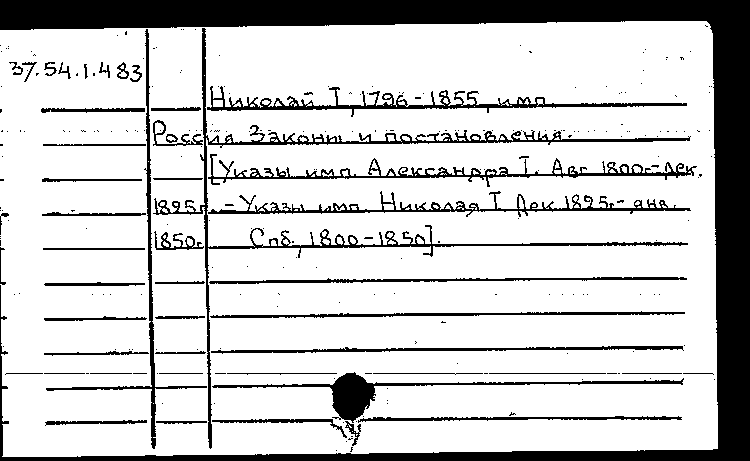 37.54.1.483
Николай I, 1796-1855, имп.
Россия. Законы и постановления.
[Указы имп. Александра I. Авг 1800.-дек.
1825г. - Указы имп. Николая I. Дек 1825г.- янв.
1850г. Спб., 1800-1850].